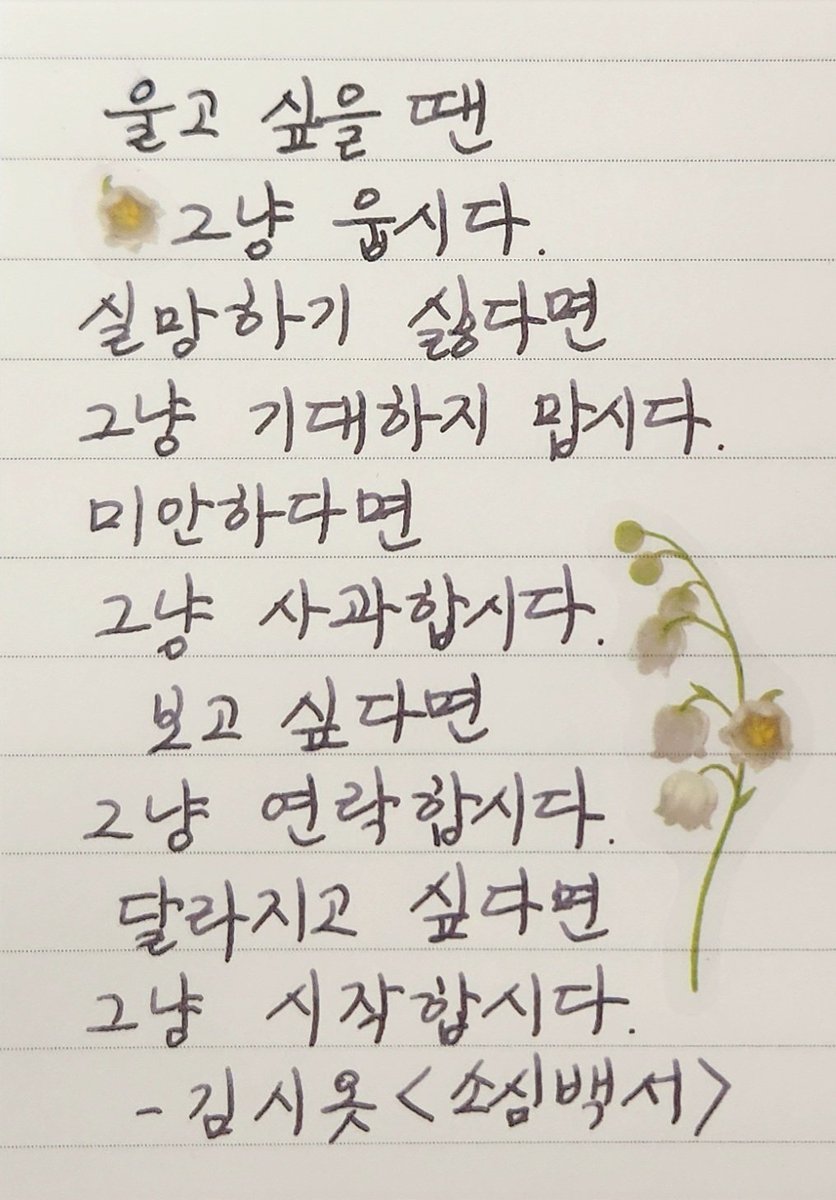 울고 싶을 땐
그냥 웁시다.
실망하기 싫다면
그냥 기대하지 맙시다.
미안하다면
그냥 사과합시다.
보고 싶다면
그냥 연락합시다.
달라지고 싶다면
그냥 시작합시다.
- 김시옷 <소심백서>